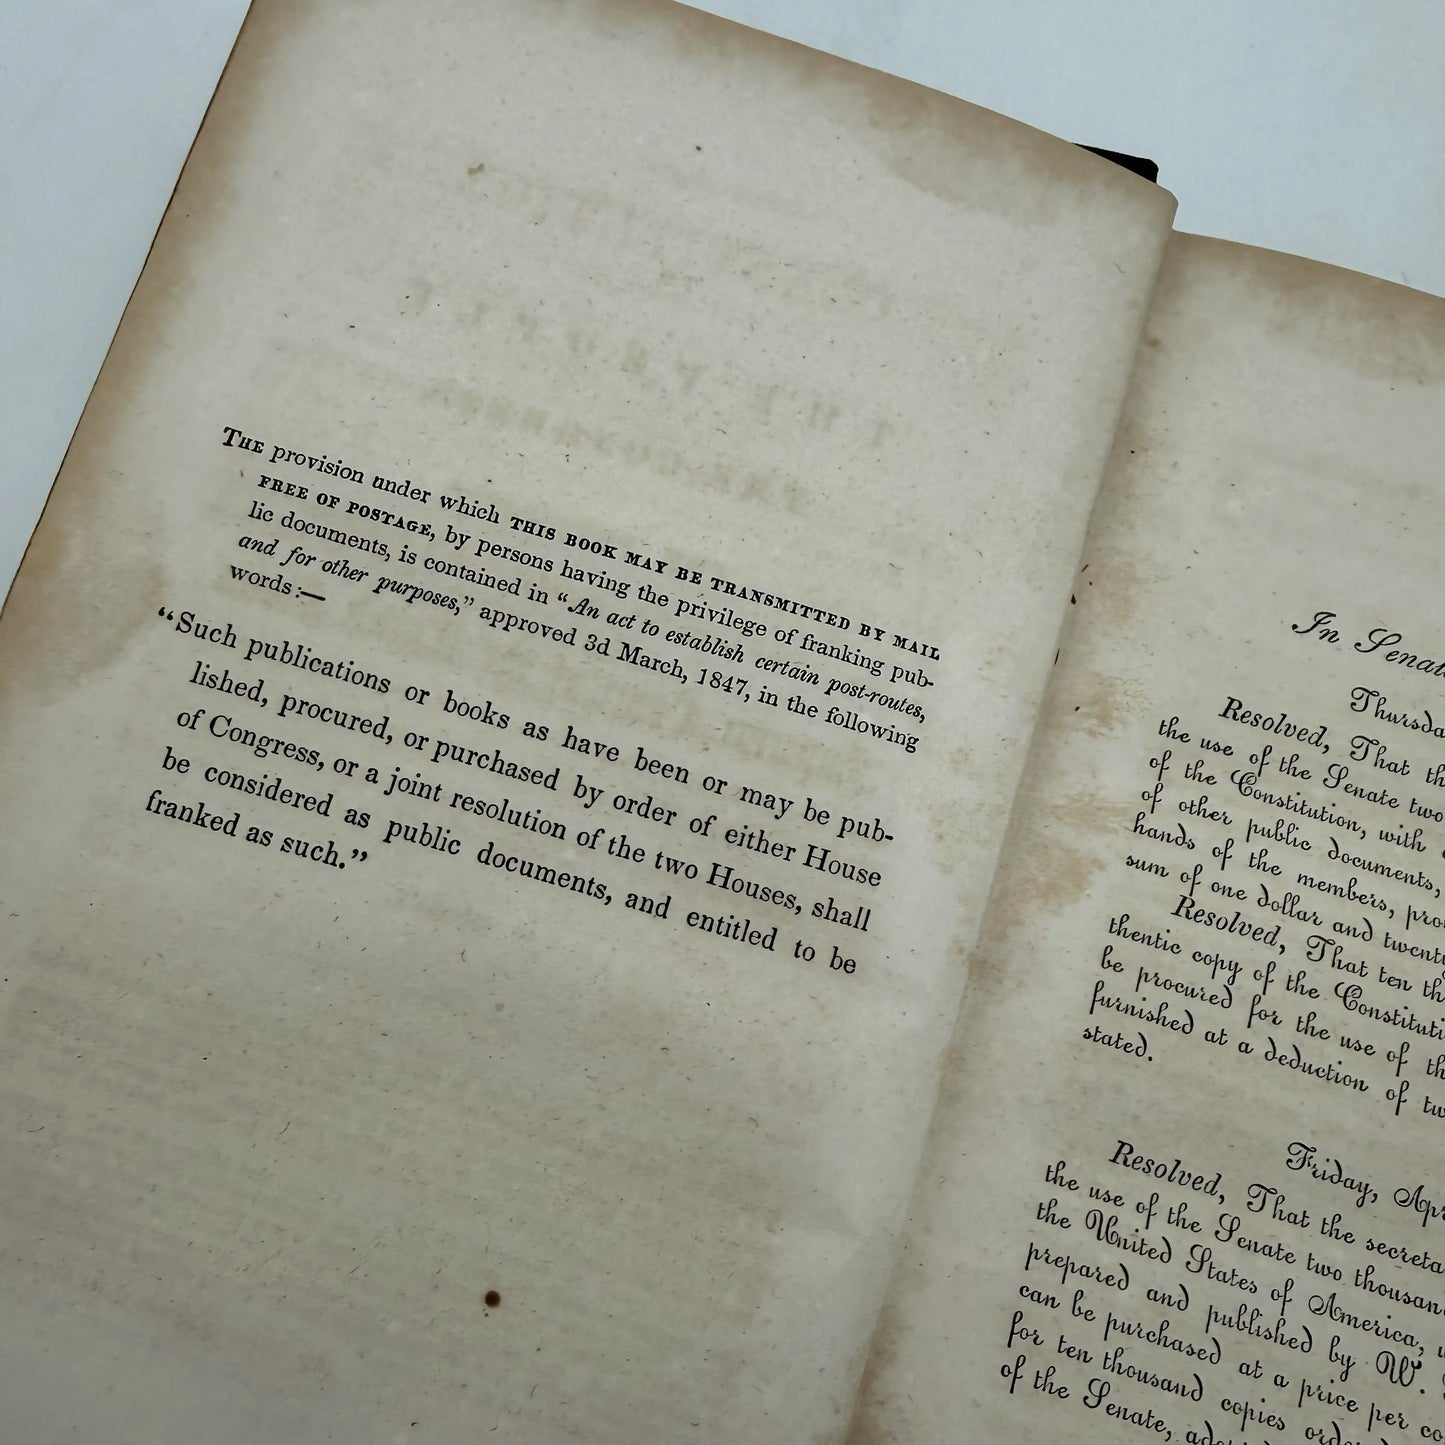 THE provision under which THIS BOOK MAY BE TRANSMITTED BY MAIL
FREE OF POSTAGE, by persons having the privilege of franking pub-
lic documents, is contained in "An act to establish certain post-routes,
and for other purposes," approved 3d March, 1847, in the following
words:—
"Such publications or books as have been or may be pub-
lished, procured, or purchased by order of either House
of Congress, or a joint resolution of the two Houses, shall
be considered as public documents, and entitled to be
franked as such."
In Senate
Thursda
Resolved, That th
the use of the Senate two
of the Constitution, with
of other public documents,
hands of the members, pro
sum of one dollar and twenty
Resolved, That ten th
thentic copy of the Constituti
be procured for the use of th
furnished at a deduction of tw
stated.
Friday, Apr
Resolved, That the secreta
the use of the Senate two thousan
the United States of America,
prepared and published by W.
can be purchased at a price per co
for ten thousand copies orde
of the Senate, ado